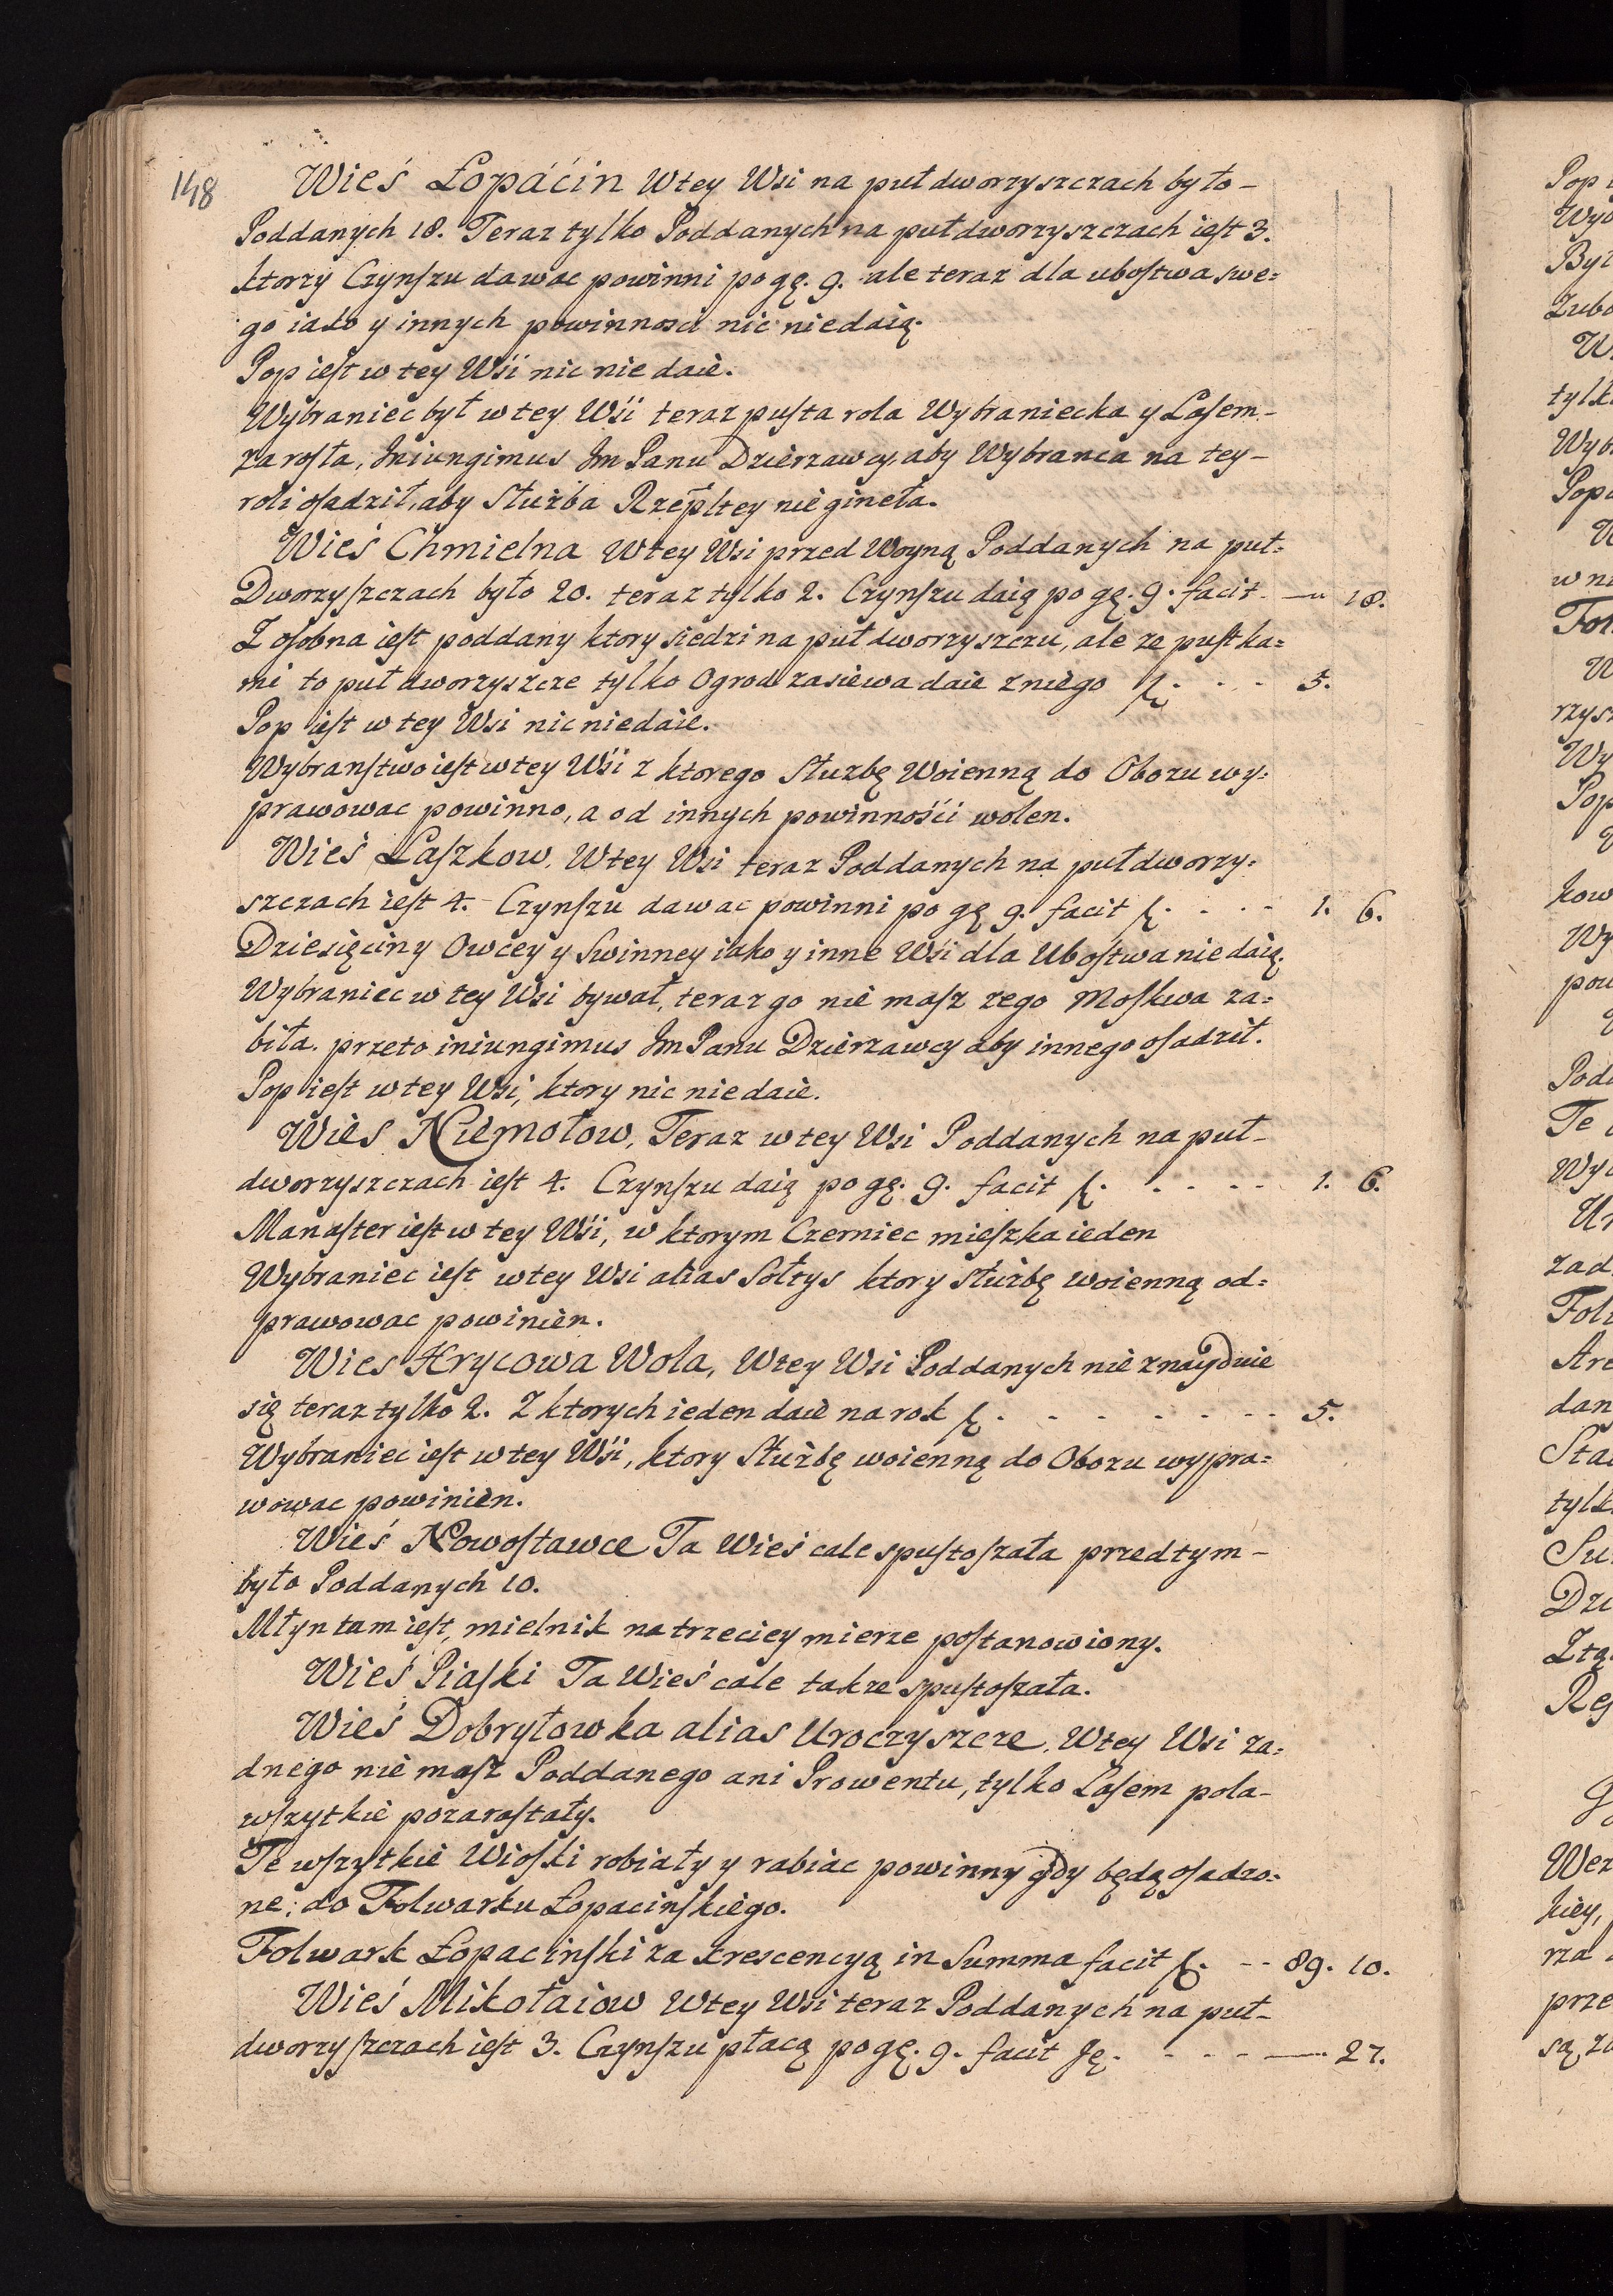 148
Wieś Łopácin Wtey Wsi na puł dworzyszczach było-
Poddanych 18. Teraz tylko Poddanych na puł dworzyszczach ieſt 3.
ktorzy Czynſzu dawac powinni po gę. 9. ale teraz dla uboſtwa swe=
go iako y innych powinnosci nic niedaią.
Pop ieſt w tey Wśi nic nie daie.
Wybraniec był w tey Wśi teraz puſta rola Wybraniecka y Laſem-
zaroſła, Iniungimus Im Panu Dzierzawcy, aby Wybranca na tey-
roli oſadził, aby Służba Rzepltey nie gineła.
Wieś Chmielna Wtey Wsi przed Woyną Poddanych na puł=
Dworzyſzczach było 20. teraz tylko 2. Czynſzu daią po gę. 9. facit — 18.
Z oſobna ieſt poddany ktory siedzi na puł dworzyszczu, ale ze puſtka=
mi to puł dworzyszcze tylko Ogrod zasiewa daie zniego ƒ. - - - 5.
Pop ieſt w tey Wsi nic niedaie.
Wybranſtwo ieſt w tey Wśi z ktorego Służbę Woienną do Obozu wy=
prawowac powinno, a od innych powinnośći wolen.
Wieś Laſzkow, Wtey Wsi teraz Poddanych na puł dworzy=
szczach ieſt 4. Czynſzu dawac powinni po gę 9. facit ƒ. - - - - 1. 6.
Dziesięciny Owcey y Swinney iako y inne Wśi dla Uboſtwa nie daią.
Wybraniec w tey Wsi bywał, teraz go nie maſz zego Moſkwa za=
biła. przeto iniungimus Im Panu Dzierzawcy aby innego oſadził.
Pop ieſt w tey Wsi, ktory nic nie daie.
Wies Niemołow, Teraz w tey Wsi Poddanych na puł-
dworzyszczach ieſt 4. Czynſzu daią po gę. 9. facit ƒ. - - - - - 1. 6.
Manaſter ieſt w tey Wśi, w ktorym Czerniec mieſzka ieden
Wybraniec ieſt w tey Wsi alias Sołtys ktory służbę woienną od=
prawowac powinien.
Wies Hrycowa Wola, Wtey Wsi Poddanych nie znayduie
się teraz tylko 2. Z ktorych ieden daie na rok ƒ. - - - - - - - 5.
Wybraniec ieſt w tey Wśi, ktory Służbę woienną do Obozu wypra=
wowac powinien.
Wieś Nowoſtawce Ta Wieś cale spuſtoſzała przedtym-
było Poddanych 10.
Młyn tam ieſt, mielnik na trzeciey mierze poſtanowiony.
Wieś Piaſki Ta Wieś cale takze spuſtoſzała.
Wieś Dobryłowka alias Uroczyszcze. Wtey Wsi za=
dnego nie maſz Poddanego ani Prowentu, tylko Laſem pola-
wſzytkie pozaraſtały.
Te wſzytkie Wioſki robiały y rabiac powinny gdy będą oſadzo=
ne: do Folwarku Łopacinſkiego.
Folwark Łopacinſki za krescencyą in Summa facit ƒ. - - 89. 10.
Wieś Mikołaiow Wtey Wsi teraz Poddanych na puł-
dworzyſzczach ieſt 3. Czynſzu płacą po gę. 9. facit gę. - - - — 27.